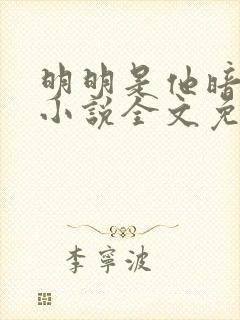 明明是他暗
小说全文免
李宁波